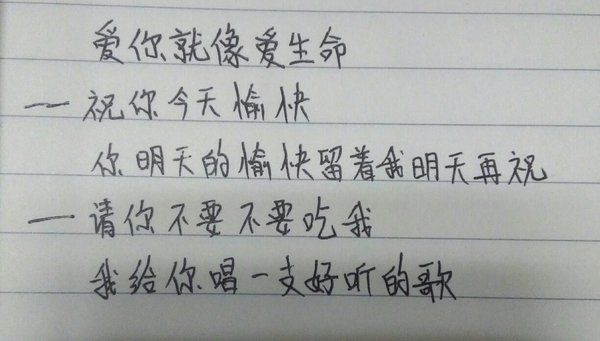 爱你就像爱生命
— 祝你今天愉快
你明天的愉快留着我明天再祝
— 请你不要不要吃我
我给你唱一支好听的歌